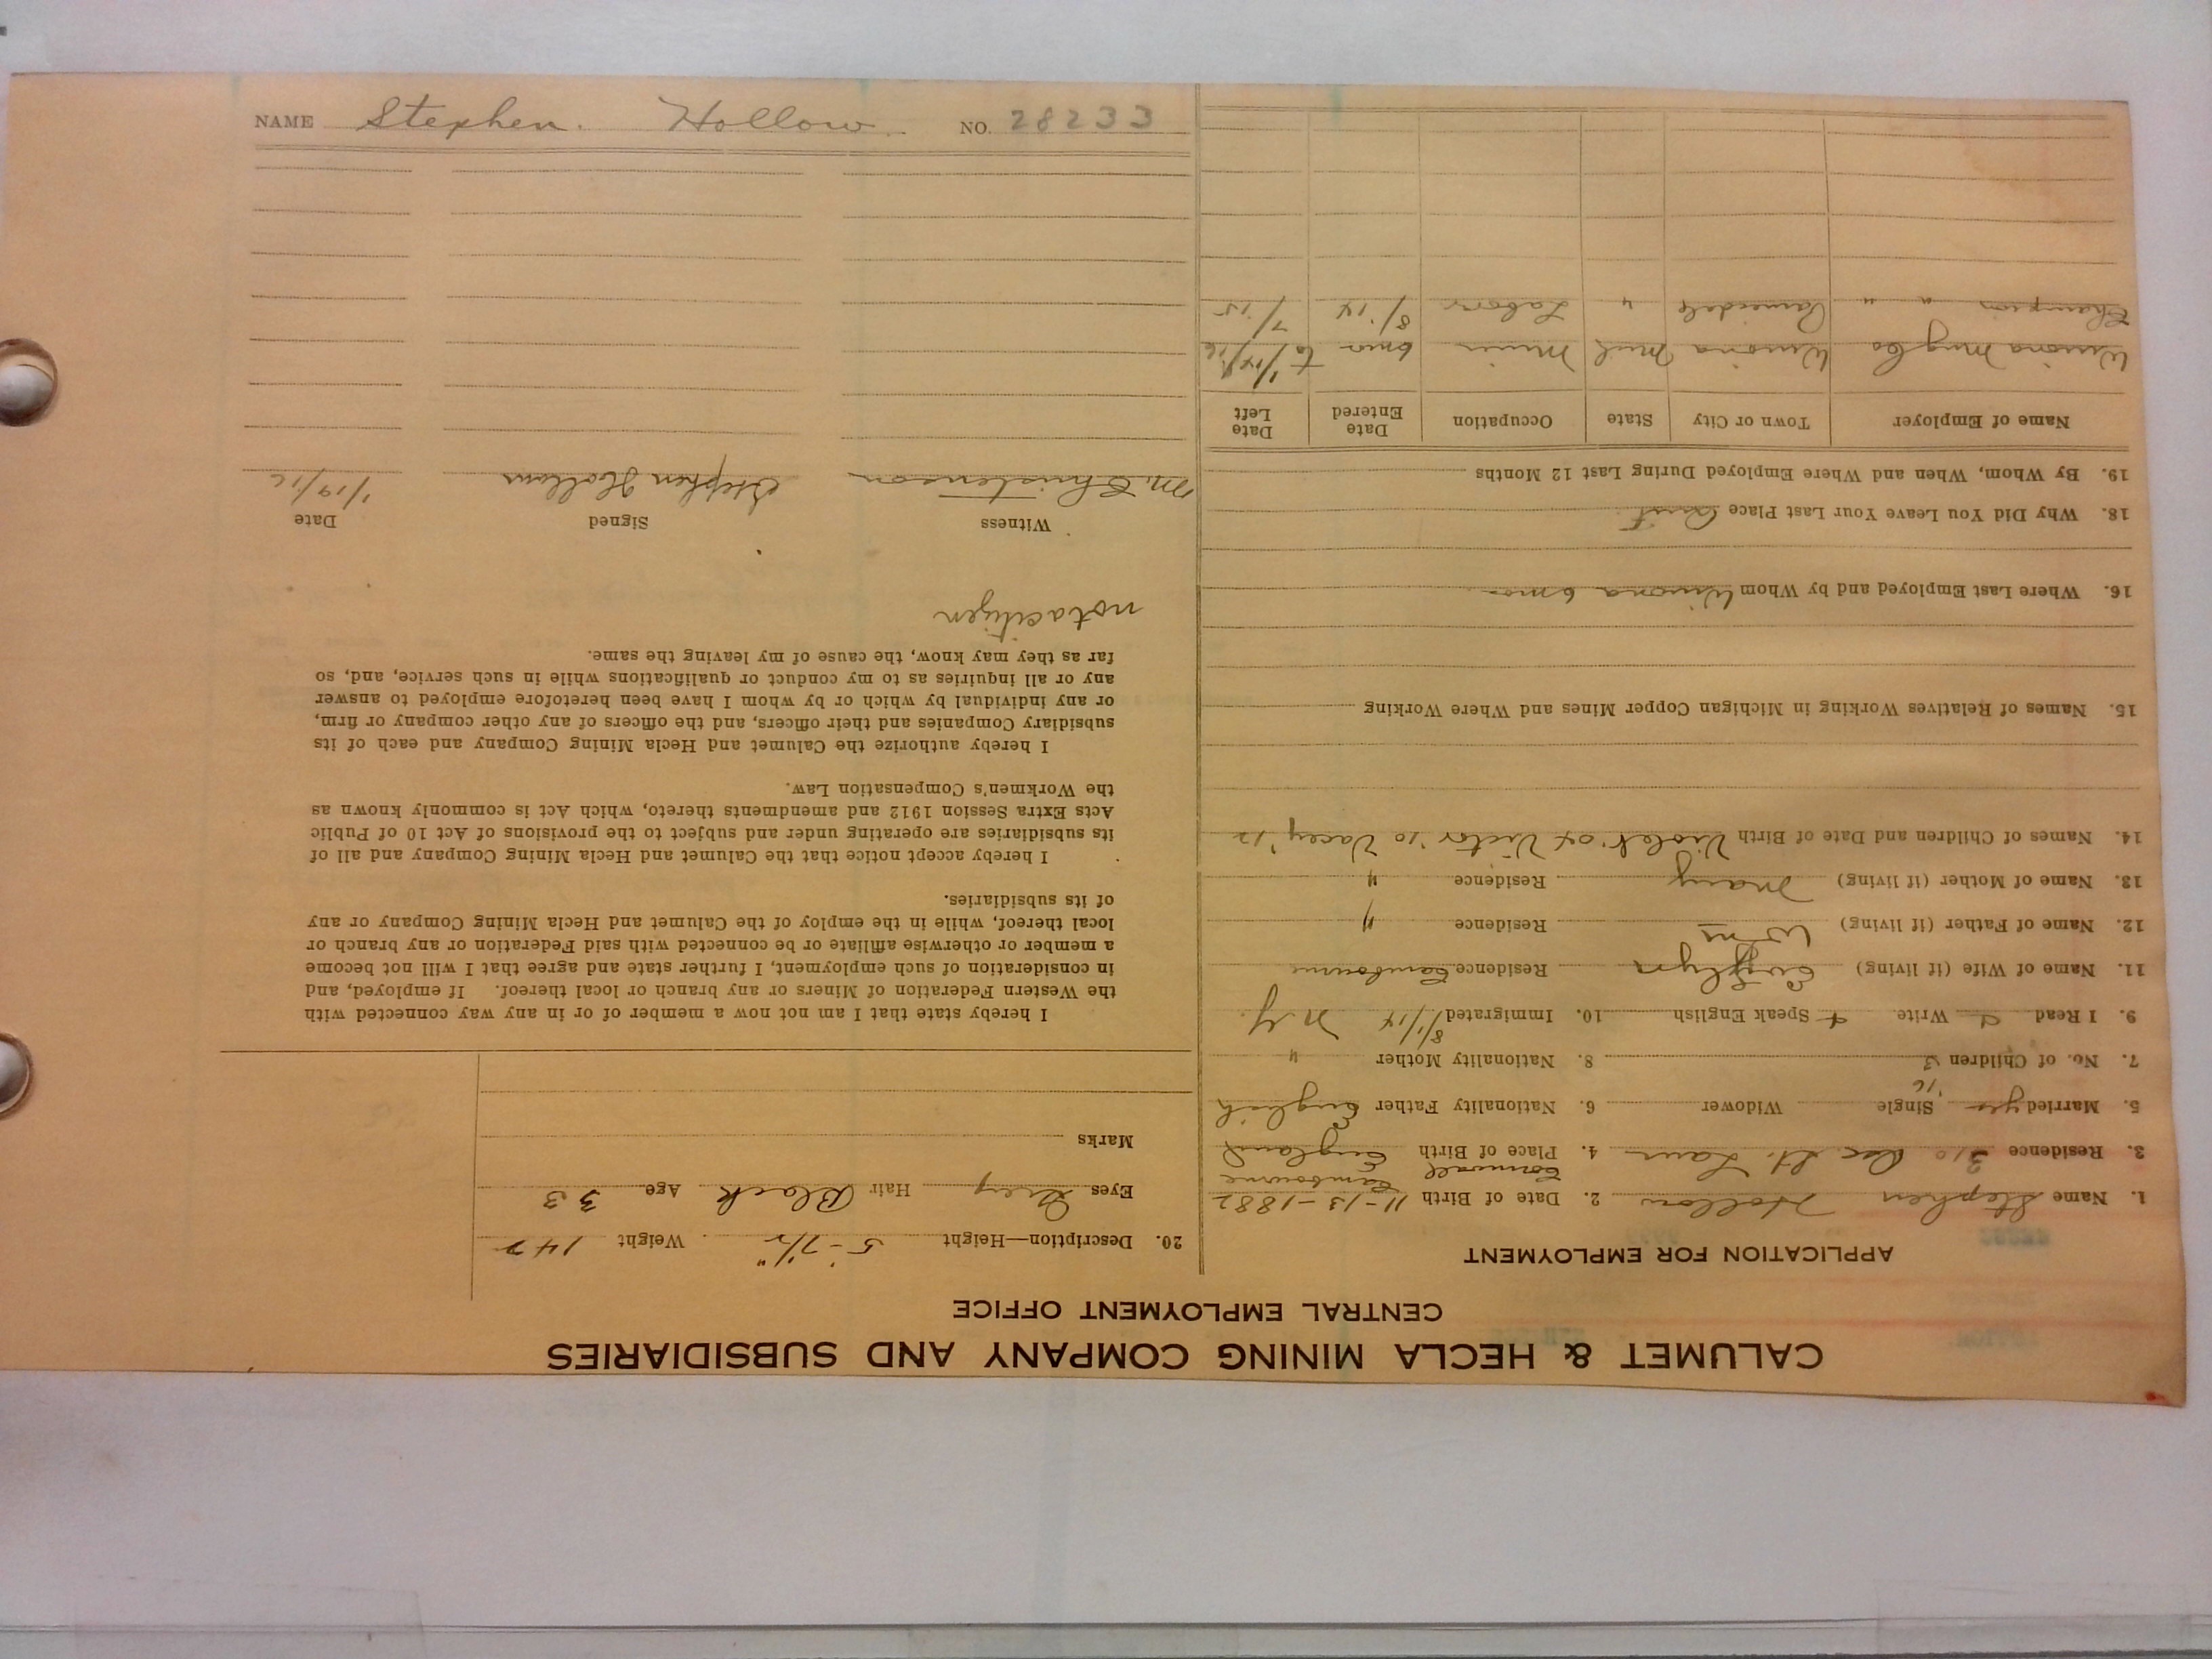 NAME Stephen. Hollow. NO. 28233
CALUMET & HECLA MINING COMPANY AND SUBSIDIARIES
CENTRAL EMPLOYMENT OFFICE
APPLICATION FOR EMPLOYMENT
1. Name Stephen Hollow 2. Date of Birth 11-13-1882
Cambourne
Cornwall
3. Residence 310 Osc. St. Laur 4. Place of Birth England
5. Married yes Single Widower 6. Nationality Father English
'16
7. No. of Children 3 8. Nationality Mother "
9. I Read Write Speak English 10. Immigrated 8/1/14 N.Y.
11. Name of Wife (if living) Residence Cambourne
12. Name of Father (if living) Wm Residence "
13. Name of Mother (if living) Mary Residence "
14. Names of Children and Date of Birth Violet Victor '10 '12
15. Names of Relatives Working in Michigan Copper Mines and Where Working
16. Where Last Employed and by Whom Winona 6 mos
18. Why Did You Leave Your Last Place Quit
19. By Whom, When and Where Employed During Last 12 Months
Name of Employer Town or City State Occupation Date Entered Date Left
Winona Mng Co Winona Mich Miner 6 mos to 1/14/16
Champion " " Painesdale " Labor 8/'14 7/'15
20. Description—Height 5'-7½" Weight 147
Eyes Grey Hair Black Age 33
Marks
I hereby state that I am not now a member of or in any way connected with
the Western Federation of Miners or any branch or local thereof. If employed, and
in consideration of such employment, I further state and agree that I will not become
a member or otherwise affiliate or be connected with said Federation or any branch or
local thereof, while in the employ of the Calumet and Hecla Mining Company or any
of its subsidiaries.
I hereby accept notice that the Calumet and Hecla Mining Company and all of
its subsidiaries are operating under and subject to the provisions of Act 10 of Public
Acts Extra Session 1912 and amendments thereto, which Act is commonly known as
the Workmen's Compensation Law.
I hereby authorize the Calumet and Hecla Mining Company and each of its
subsidiary Companies and their officers, and the officers of any other company or firm,
or any individual by which or by whom I have been heretofore employed to answer
any or all inquiries as to my conduct or qualifications while in such service, and, so
far as they may know, the cause of my leaving the same.
not a citizen
Witness Signed Date
M. Christenson Stephen Hollow 1/19/16